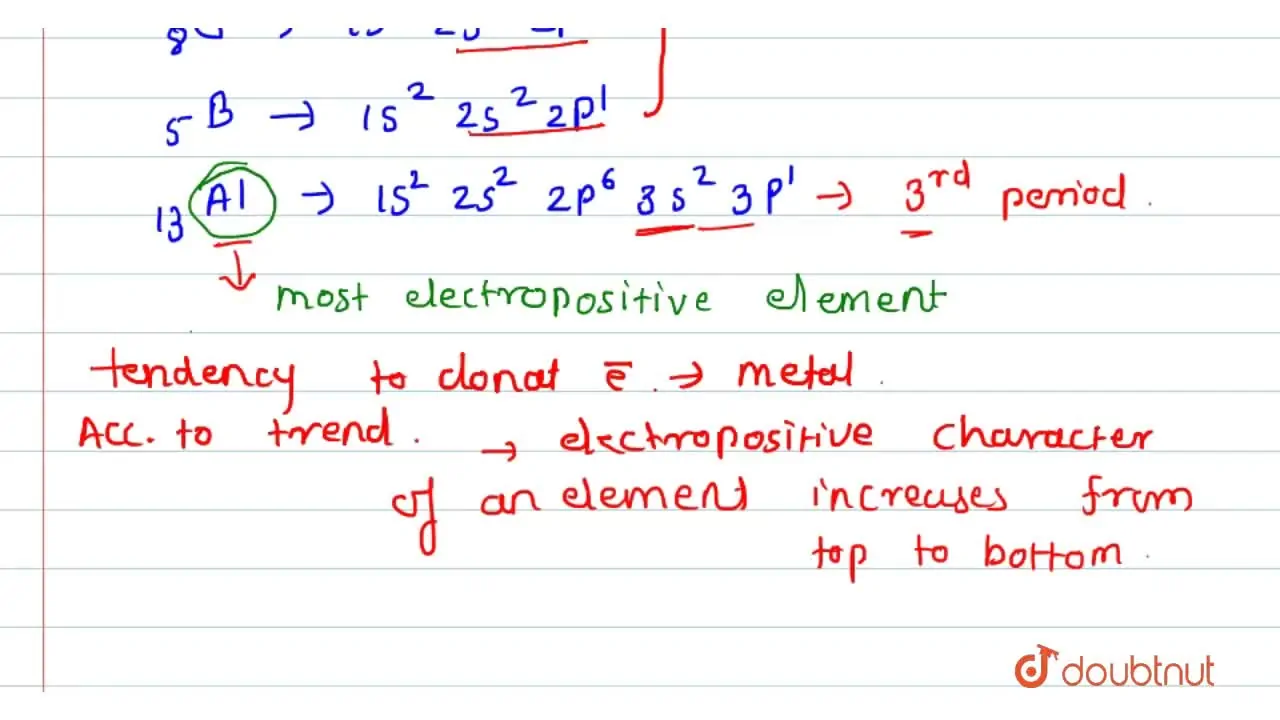 5B → 1s² 2s² 2p¹
13Al → 1s² 2s² 2p⁶ 3s² 3p¹ → 3rd period.
↓ most electropositive element
tendency to donat e̅. → metal.
Acc. to trend. → electropositive character
of an element increases from
top to bottom.
doubtnut